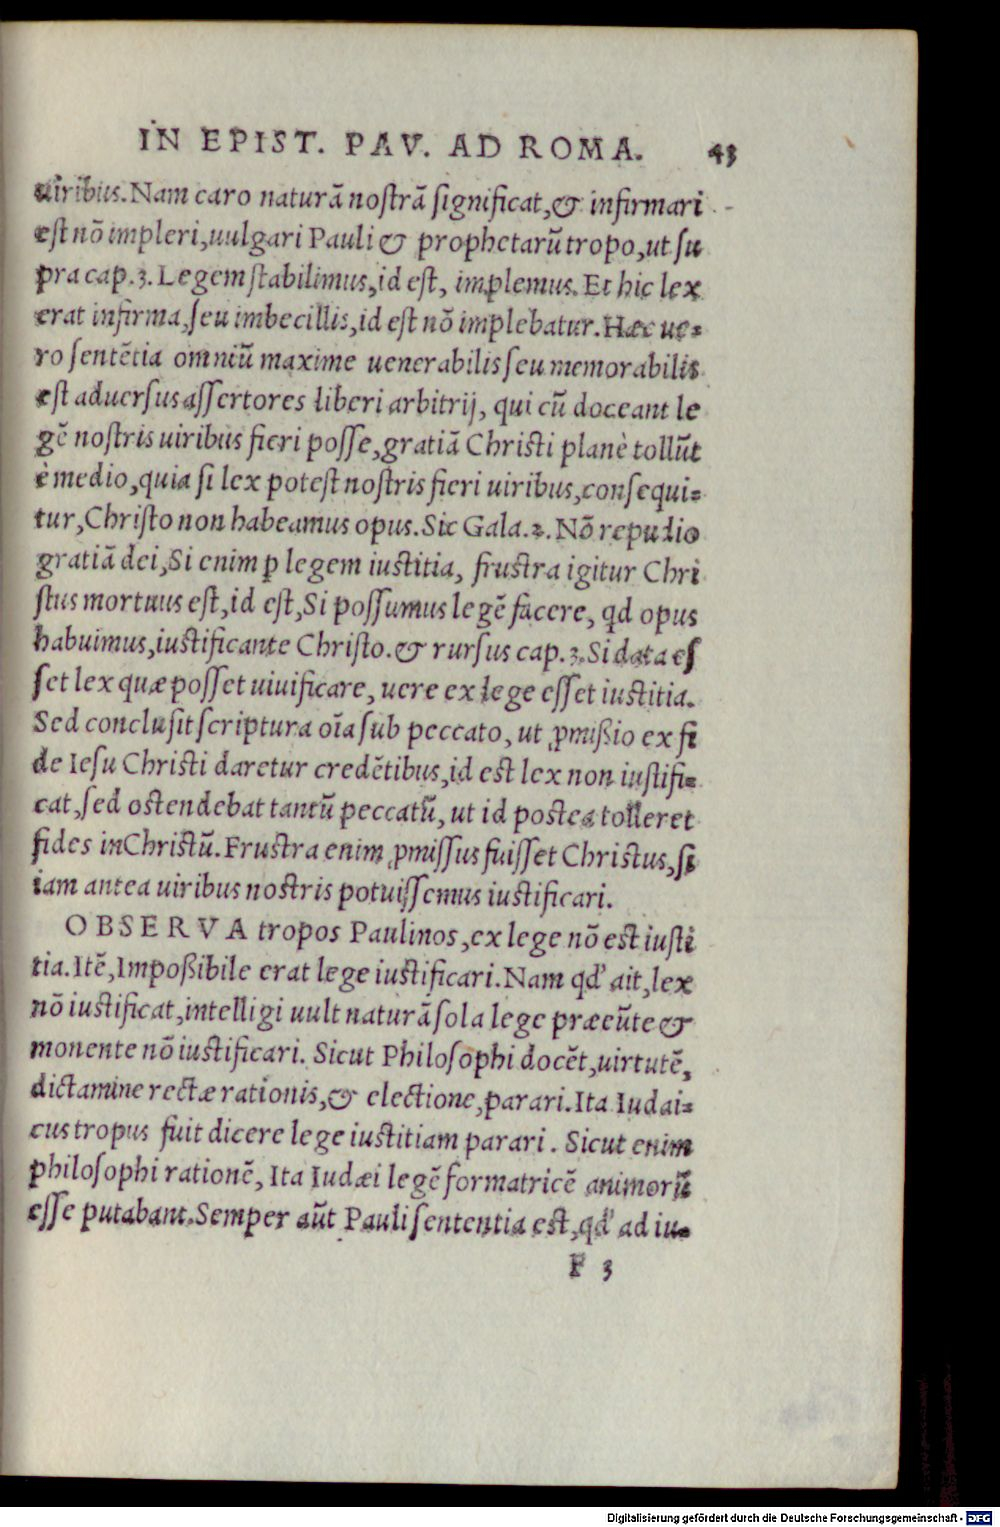 IN EPIST. PAV. AD ROMA. 43
uiribus. Nam caro naturā nostrā significat, & infirmari
est nō impleri, uulgari Pauli & prophetarū tropo, ut su
pra cap. 3. Legem stabilimus, id est, implemus. Et hic lex
erat infirma, seu imbecillis, id est nō implebatur. Hæc ue=
ro sentētia omniū maxime uenerabilis seu memorabilis
est aduersus assertores liberi arbitrij, qui cū doceant le
gē nostris uiribus fieri posse, gratiā Christi planè tollūt
è medio, quia si lex potest nostris fieri uiribus, consequi=
tur, Christo non habeamus opus. Sic Gala. 2. Nō repudio
gratiā dei, Si enim ꝑ legem iustitia, frustra igitur Chri
stus mortuus est, id est, Si possumus legē facere, qd opus
habuimus, iustificante Christo. & rursus cap. 3. Si data es
set lex quæ posset uiuificare, uere ex lege esset iustitia.
Sed conclusit scriptura oīa sub peccato, ut ꝓmißio ex fi
de Iesu Christi daretur credētibus, id est lex non iustifi=
cat, sed ostendebat tantū peccatū, ut id postea tolleret
fides in Christū. Frustra enim ꝓmissus fuisset Christus, si
iam antea uiribus nostris potuissemus iustificari.
OBSERVA tropos Paulinos, ex lege nō est iusti
tia. Itē, Impoßibile erat lege iustificari. Nam qd' ait, lex
nō iustificat, intelligi uult naturā sola lege præeūte &
monente nō iustificari. Sicut Philosophi docēt, uirtutē,
dictamine rectæ rationis, & electione, parari. Ita Iudai=
cus tropus fuit dicere lege iustitiam parari. Sicut enim
philosophi rationē, Ita Iudæi legē formatricē animorū
esse putabant. Semper aūt Pauli sententia est, qd' ad iu=
F 3
Digitalisierung gefördert durch die Deutsche Forschungsgemeinschaft - DFG